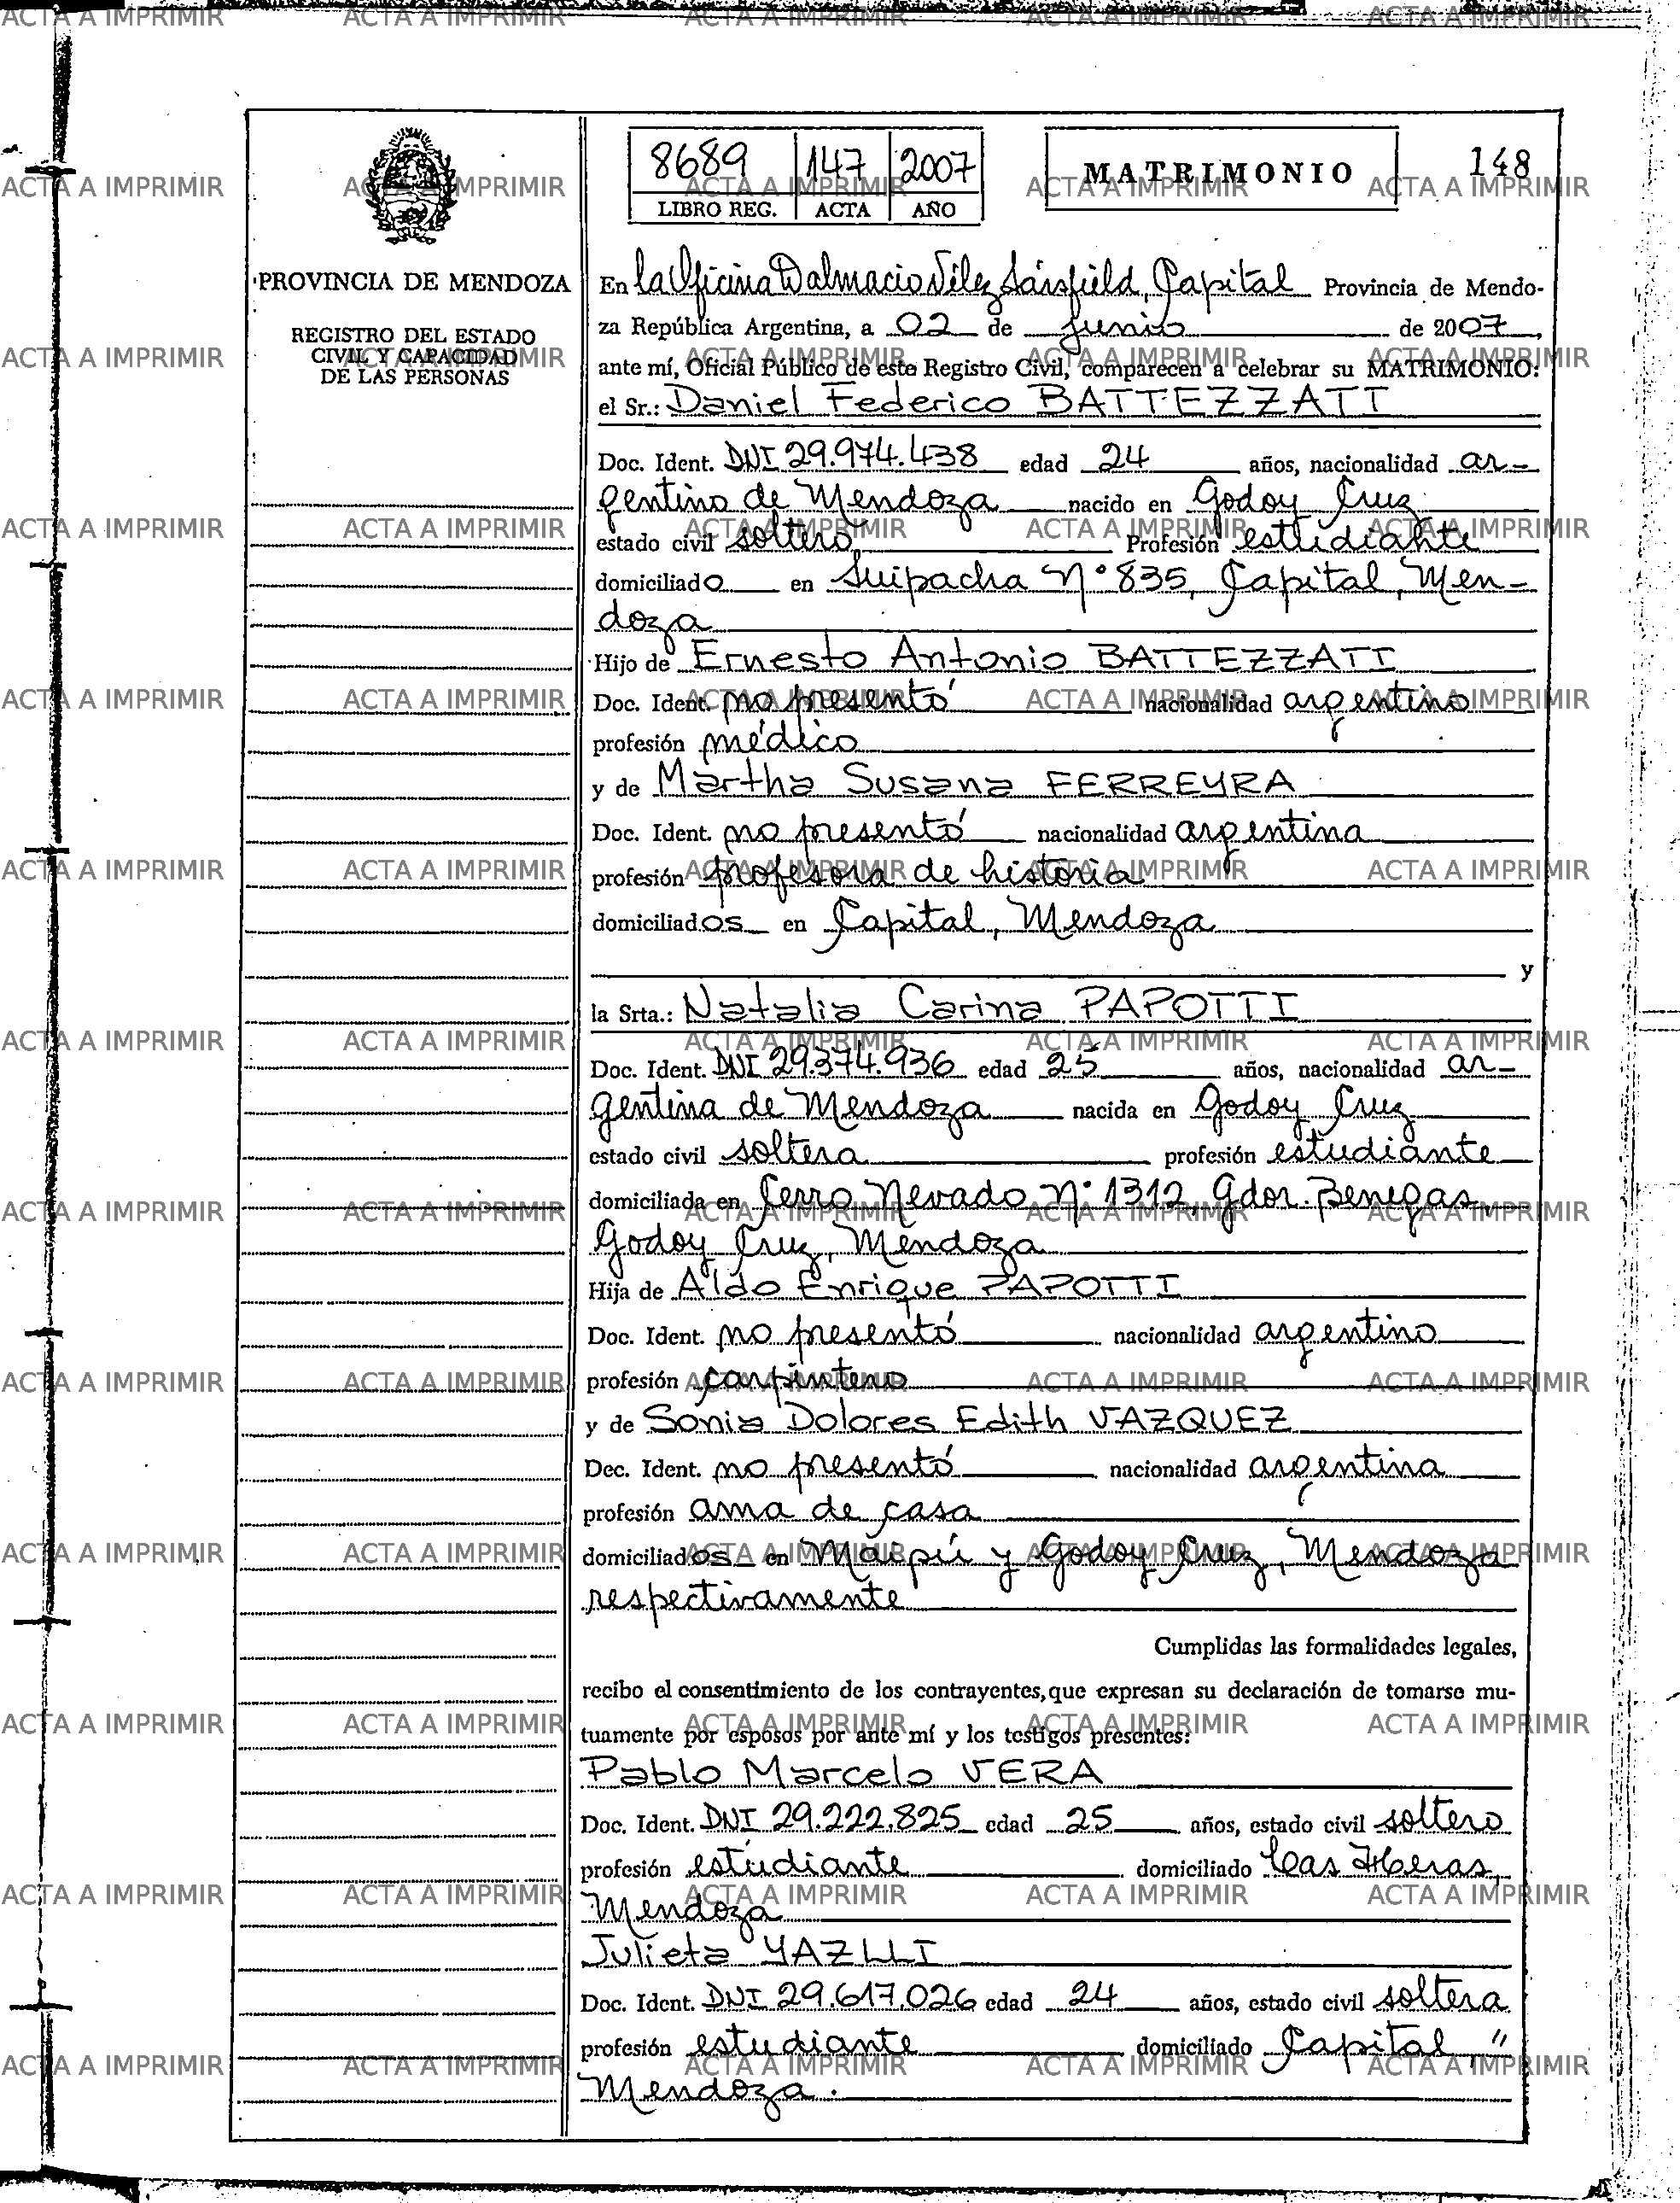 8689 147 2007 MATRIMONIO 148
LIBRO REG. ACTA AÑO
PROVINCIA DE MENDOZA
REGISTRO DEL ESTADO
CIVIL Y CAPACIDAD
DE LAS PERSONAS
En la Oficina Dalmacio Vélez Sársfield, Capital Provincia de Mendo-
za República Argentina, a 02 de junio de 2007,
ante mí, Oficial Público de este Registro Civil, comparecen a celebrar su MATRIMONIO:
el Sr.: Daniel Federico BATTEZZATI
Doc. Ident. DNI 29.974.438 edad 24 años, nacionalidad ar-
gentino de Mendoza nacido en Godoy Cruz
estado civil soltero Profesión estudiante
domiciliado en Suipacha Nº 835, Capital, Men-
doza
Hijo de Ernesto Antonio BATTEZZATI
Doc. Ident. no presentó nacionalidad argentino
profesión médico
y de Martha Susana FERREYRA
Doc. Ident. no presentó nacionalidad argentina
profesión profesora de historia
domiciliados en Capital, Mendoza
y
la Srta.: Natalia Carina PAPOTTI
Doc. Ident. DNI 29.374.936 edad 25 años, nacionalidad ar-
gentina de Mendoza nacida en Godoy Cruz
estado civil soltera profesión estudiante
domiciliada en Cerro Nevado Nº 1312, Gdor. Benegas,
Godoy Cruz, Mendoza
Hija de Aldo Enrique PAPOTTI
Doc. Ident. no presentó nacionalidad argentino
profesión carpintero
y de Sonia Dolores Edith VAZQUEZ
Doc. Ident. no presentó nacionalidad argentina
profesión ama de casa
domiciliados en Maipú y Godoy Cruz, Mendoza
respectivamente
Cumplidas las formalidades legales,
recibo el consentimiento de los contrayentes, que expresan su declaración de tomarse mu-
tuamente por esposos por ante mí y los testigos presentes:
Pablo Marcelo VERA
Doc. Ident. DNI 29.222.825 edad 25 años, estado civil soltero
profesión estudiante domiciliado Las Heras,
Mendoza
Julieta YAZLLI
Doc. Ident. DNI 29.617.026 edad 24 años, estado civil soltera
profesión estudiante domiciliado Capital, "
Mendoza.
ACTA A IMPRIMIR